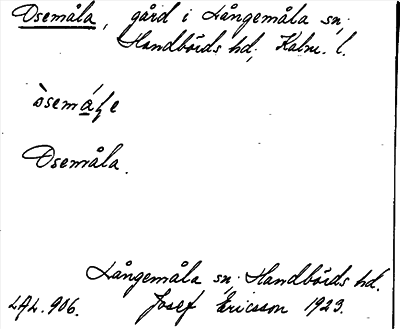 Osemåla, gård i Långemåla sn,
Handbörds hd, Kalm. l.
Osemåla.
Långemåla sn, Handbörds hd.
LAL. 906. Josef Ericsson 1923.